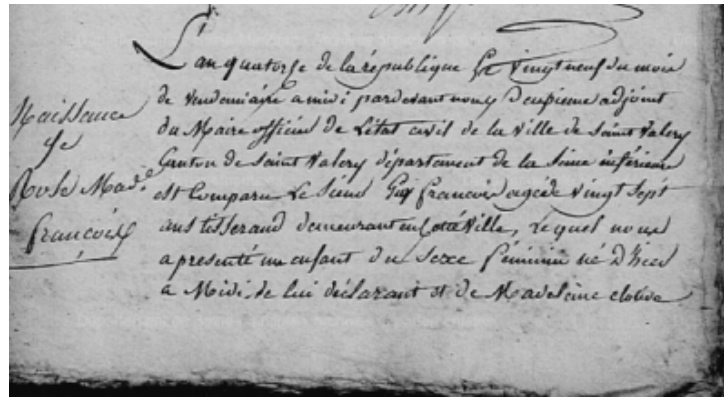 Naissance
de
Rose Mad.e
françois
L'an quatorze de la république Le vingt neuf du mois
de Vendemiaire a midi pardevant nous Deuxieme adjoint
du Maire officier de L'état civil de la Ville de Saint Valery
Canton de Saint Valery département de la Seine inférieure
est Comparu Le Sieur Guy françois agé de Vingt Sept
ans tisserand demeurant en cette Ville, Lequel nous
a presenté un enfant du Sexe féminin né D'hier
a Midi, de lui déclarant et de Madeleine